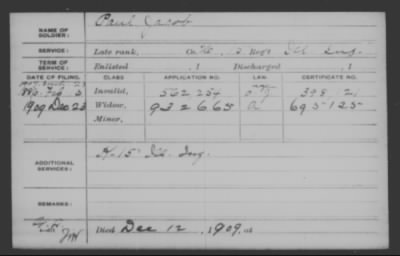 NAME OF SOLDIER: Paul Jacob
SERVICE: Late rank, Co. 13 Reg't Ill. Inf.
TERM OF SERVICE: Enlisted , 1 Discharged , 1
DATE OF FILING. CLASS. APPLICATION NO. LAW. CERTIFICATE NO.
Invalid, 562 254
1909 Dec 23 Widow, 932665 a 695125
Minor,
ADDITIONAL SERVICES: A-15" Ill. Inf.
REMARKS:
Died Dec 12, 1909, at